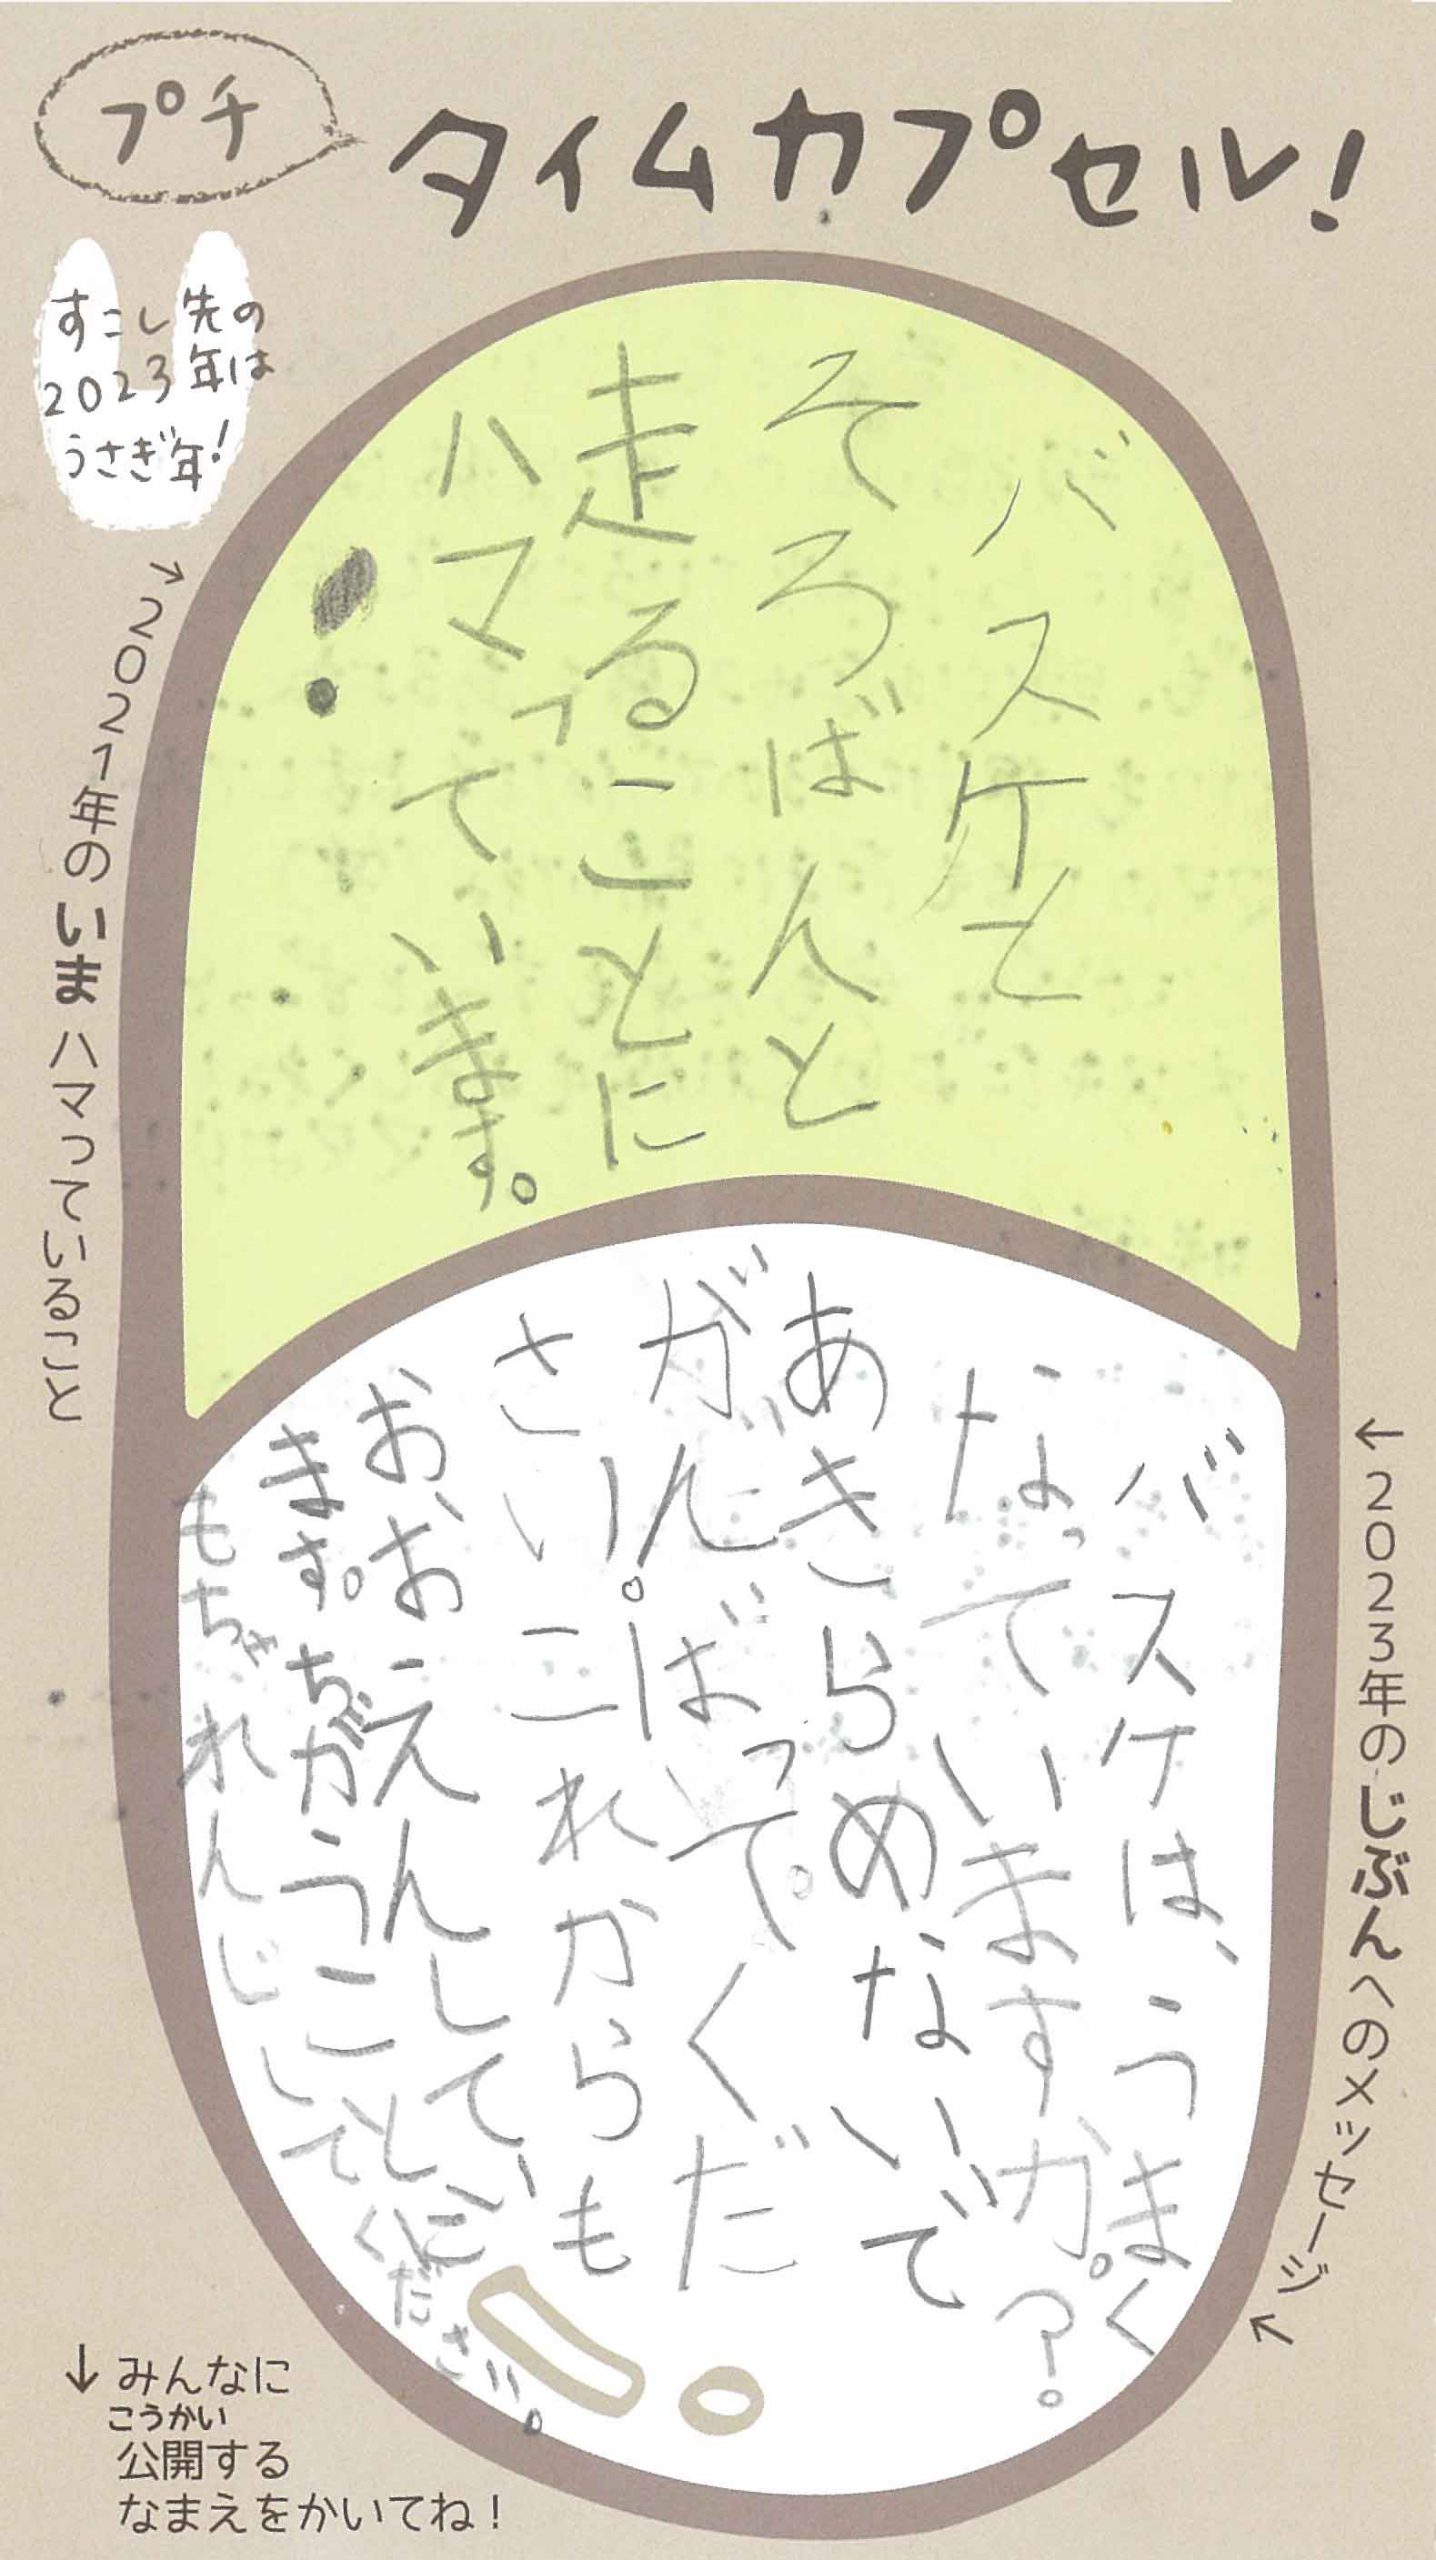 プチ
タイムカプセル！
すこし先の
2023年は
うさぎ年！
→2021年のいまハマっていること
バスケと
そろばんと
走ることに
ハマっています。
←2023年のじぶんへのメッセージ↖
バスケは、うまく
なっていますか。？。
あきらめないで
がんばって。くだ
さい。
これからも
おおえんしてい
ます。ぢがうことに
もちゃれんじしてください。
↓みんなに
こうかい
公開する
なまえをかいてね！